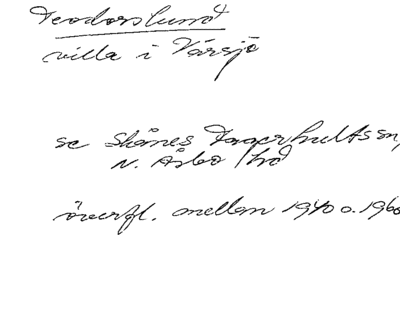 Teodorslund
villa i Värsjö
se Skånes Fagerhults sn,
N. Åsbo hd
överfl. mellan 1940 o. 1960